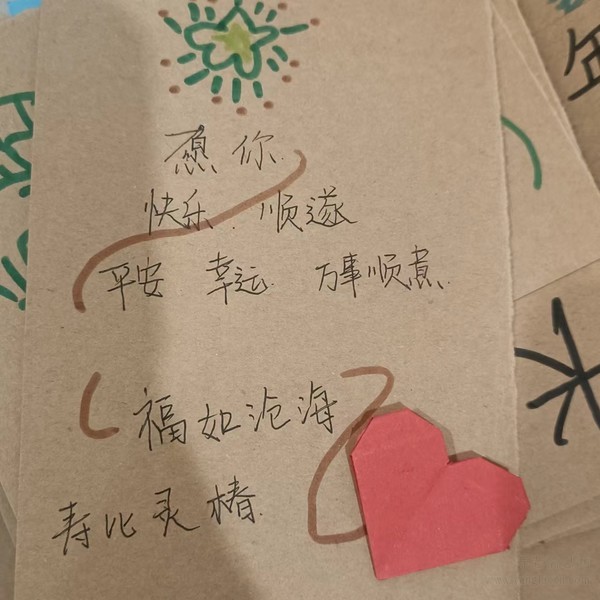 愿你
快乐、顺遂
平安 幸运 万事顺意
福如沧海
寿比灵椿
年